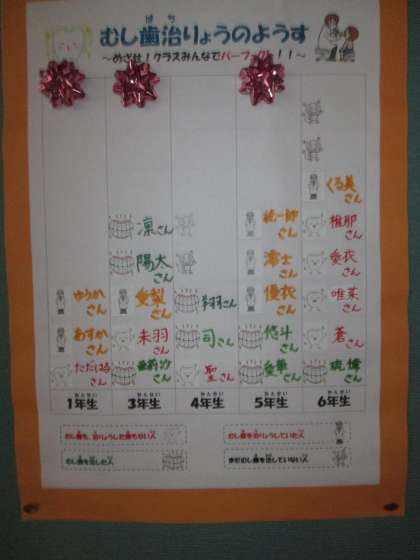 むし歯治りょうのようす
～めざせ！クラスみんなでパーフェクト！！～
くる美さん
凛さん
統一郎さん
椎那さん
陽太さん
澪士さん
愛衣さん
ゆうかさん
愛梨さん
翔羽さん
優衣さん
唯菜さん
あすかさん
未羽さん
司さん
悠斗さん
蒼さん
ただはるさん
亜莉沙さん
聖さん
愛華さん
1年生
3年生
4年生
5年生
6年生
むし歯も、治りょうした歯もない人
むし歯を治りょうしていた人
むし歯を治した人
まだむし歯を治していない人